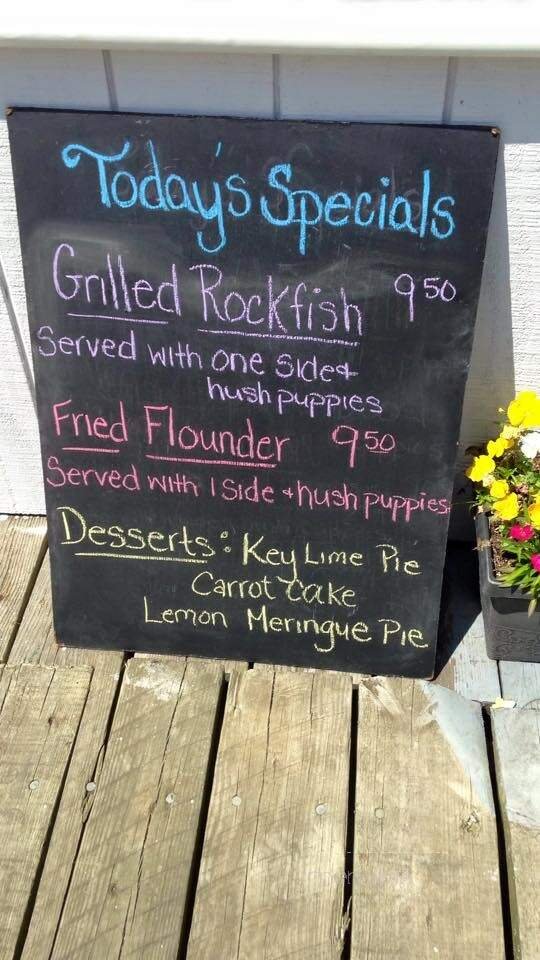 Today's Specials
Grilled Rockfish 9 50
Served with one side +
hush puppies
Fried Flounder 9 50
Served with 1 side + hush puppies
Desserts: Key Lime Pie
Carrot Cake
Lemon Meringue Pie